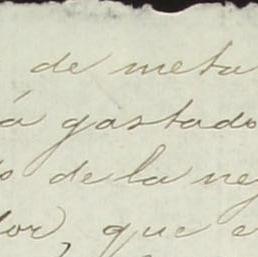 de meta
á gastado
o de la neg
dor, que e